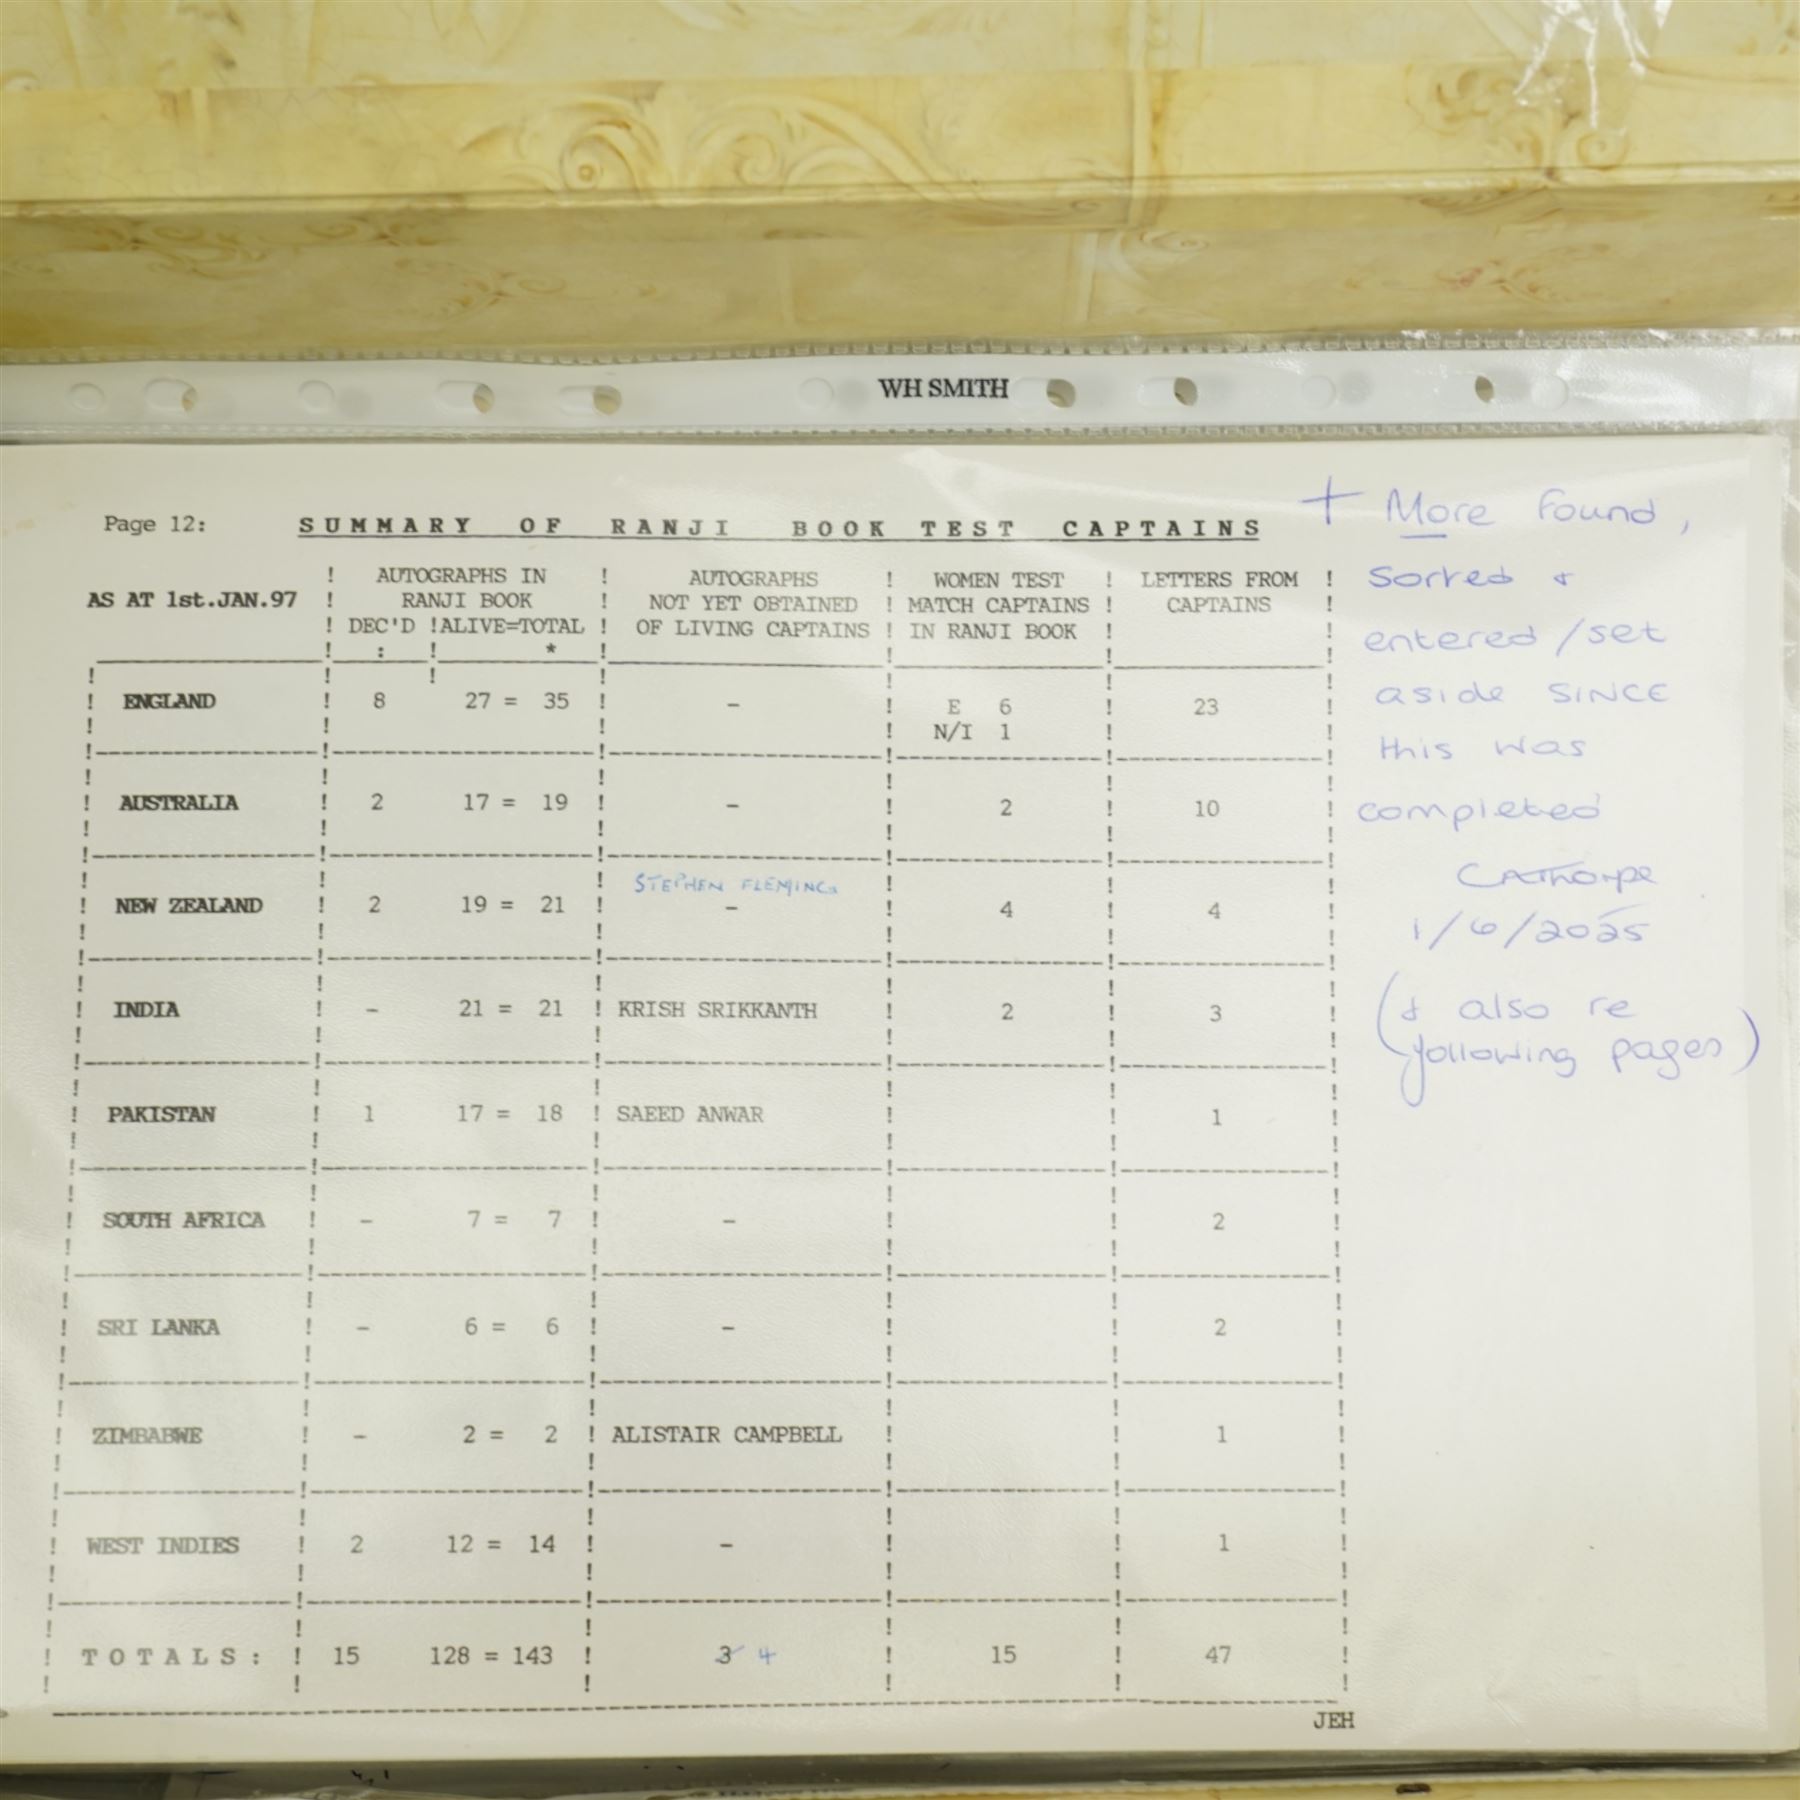 WH SMITH
Page 12: SUMMARY OF RANJI BOOK TEST CAPTAINS
AS AT 1st.JAN.97
AUTOGRAPHS IN
RANJI BOOK
DEC'D ! ALIVE=TOTAL
: *
AUTOGRAPHS
NOT YET OBTAINED
OF LIVING CAPTAINS
WOMEN TEST
MATCH CAPTAINS
IN RANJI BOOK
LETTERS FROM
CAPTAINS
ENGLAND 8 27 = 35 - E 6 23
N/I 1
AUSTRALIA 2 17 = 19 - 2 10
STEPHEN FLEMING
NEW ZEALAND 2 19 = 21 - 4 4
INDIA - 21 = 21 KRISH SRIKKANTH 2 3
PAKISTAN 1 17 = 18 SAEED ANWAR 1
SOUTH AFRICA - 7 = 7 - 2
SRI LANKA - 6 = 6 - 2
ZIMBABWE - 2 = 2 ALISTAIR CAMPBELL 1
WEST INDIES 2 12 = 14 - 1
TOTALS: 15 128 = 143 3 4 15 47
JEH
+ More found,
sorted &
entered/set
aside SINCE
this was
completed
CAThorpe
1/6/2025
(& also re
following pages)